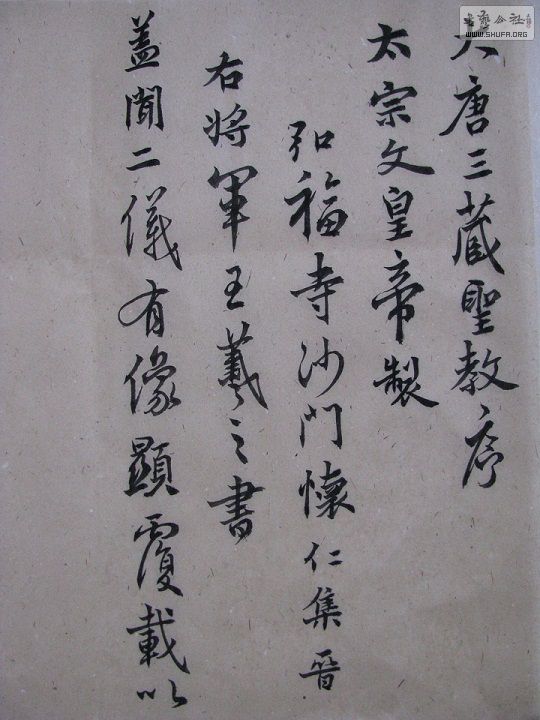 大唐三藏聖教序
太宗文皇帝製
弘福寺沙門懷仁集晉
右將軍王羲之書
蓋聞二儀有像顯覆載以
WWW.SHUFA.ORG